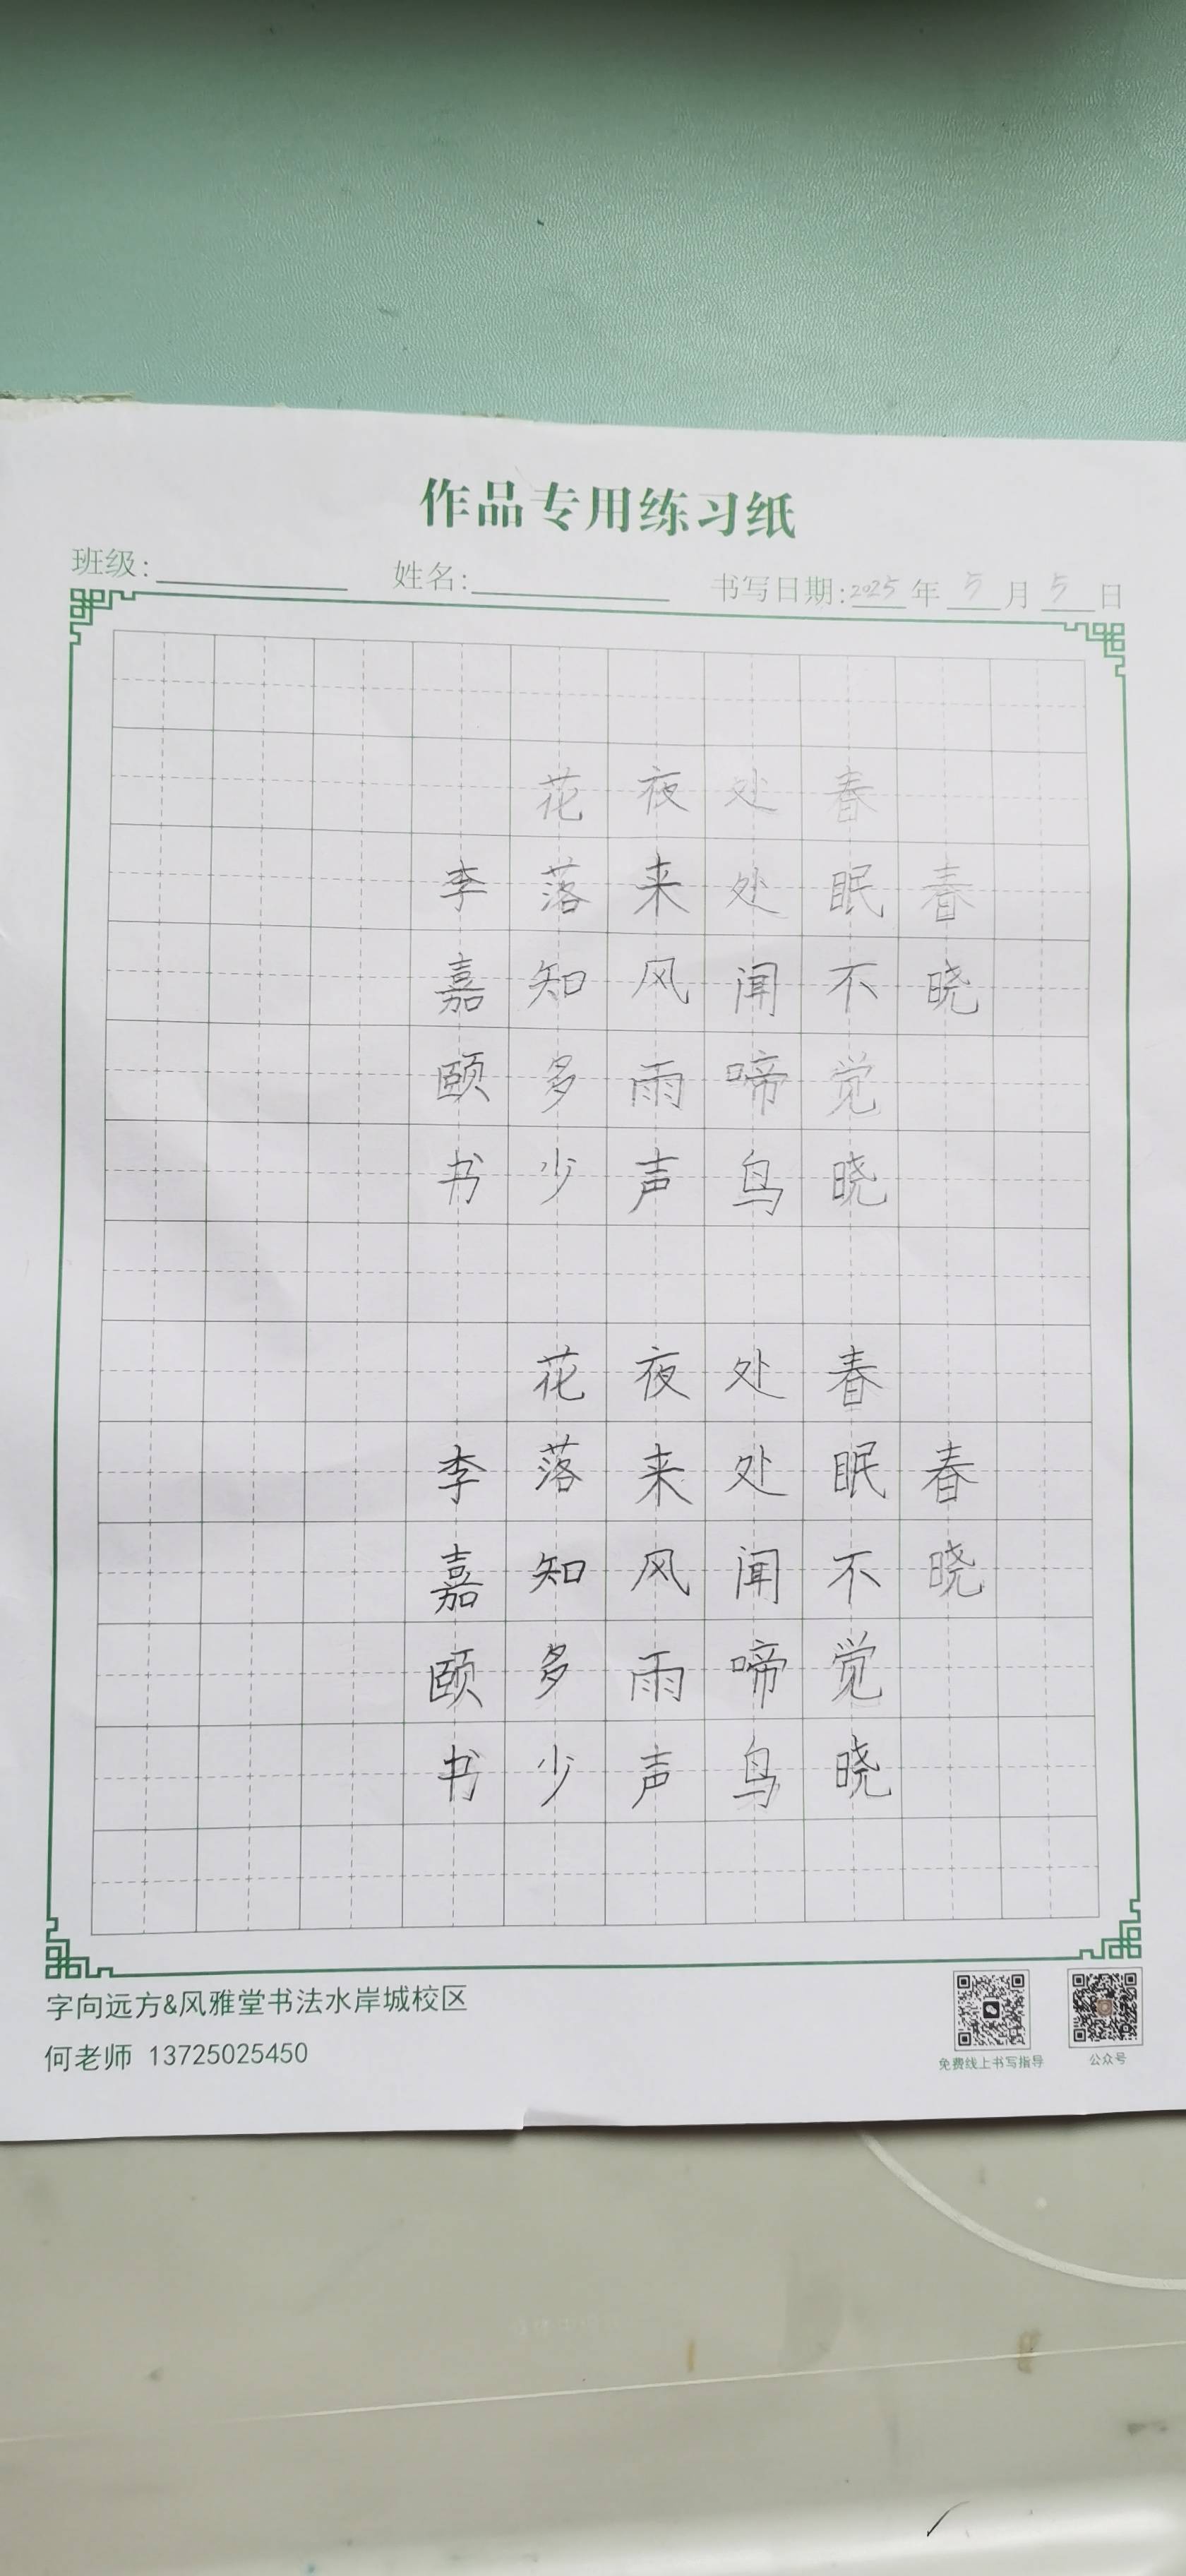 作品专用练习纸
班级: 姓名: 书写日期:2025年 5 月 5 日
春晓
春眠不觉晓
处处闻啼鸟
夜来风雨声
花落知多少
李嘉颐书
春晓
春眠不觉晓
处处闻啼鸟
夜来风雨声
花落知多少
李嘉颐书
字向远方&风雅堂书法水岸城校区
何老师 13725025450
免费线上书写指导
公众号